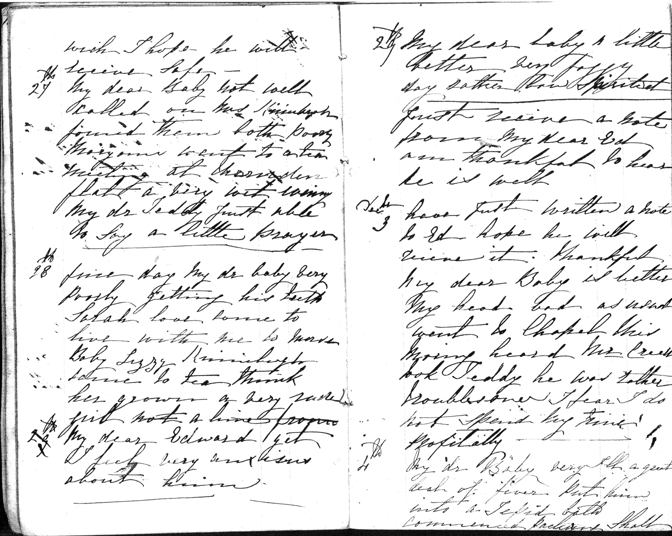 wich I hope he will
receive safe -
27th My dear Baby not well
called on Mrs Kinnibugh
found them both poorly
Maryann went to a tea
meeting at
flatt a very wet
My dr Teddy Just able
to Say a little prayer
28th fine day My dr baby very
Poorly getting his teeth
Sarah love come to
live with me to nurse
Baby Lizzy Kinniburgh
came to tea think
her grown a very
girl not a line from
29th My dear Edward yet
I feel very anxious
about him
29th My dear baby a little
better very foggy
day rather low Spirited
Just receive a note
from My dear Ed
am thankful to hear
he is well
3 have Just written a note
to Ed hope he will
receive it. thankful
my dear Baby is better
My head bad as usual
went to Chapel this
Morning heard Mr
took Teddy he was rather
troublesome I fear I do
not Spend My time
profitally
4th My dr Baby very ill a great
deal of fever Put him
into a Tepid bath
commenced Shall